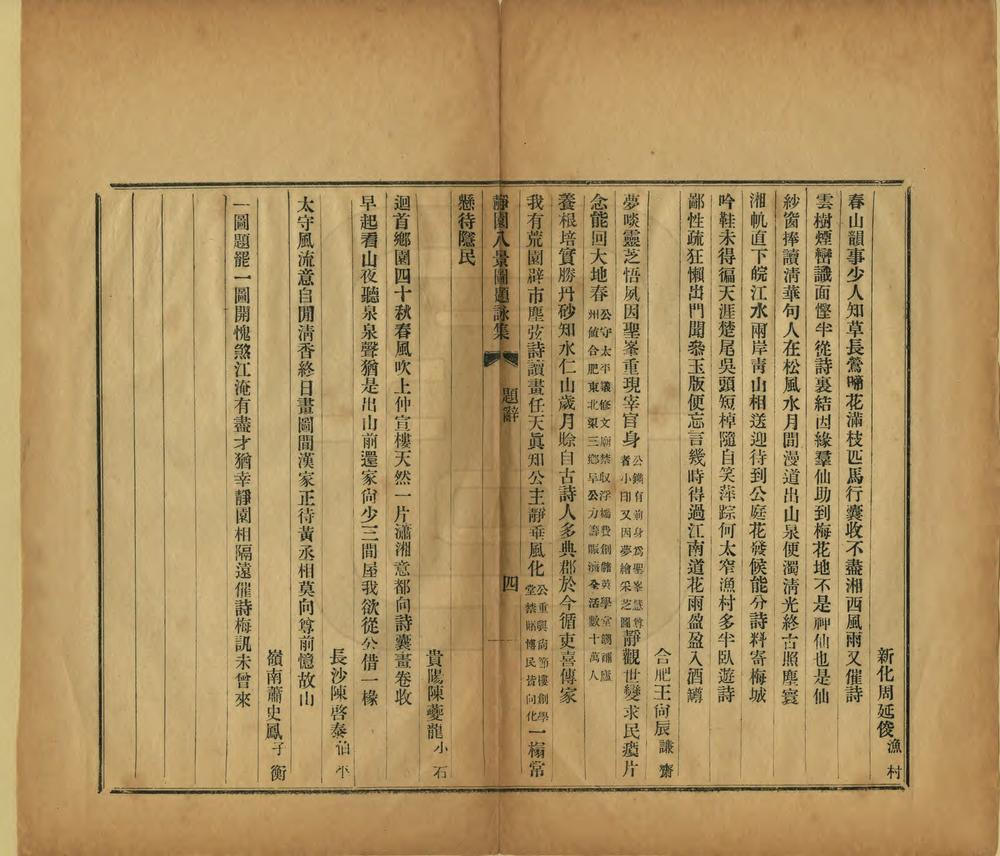 新化周延俊漁村
春山韻事少人知草長鶯啼花滿枝匹馬行囊收不盡湘西風雨又催詩
雲樹煙巒識面慳半從詩裏結因緣羣仙助到梅花地不是神仙也是仙
紗窗捧讀清華句人在松風水月間漫道出山泉便濁清光終古照塵寰
湘帆直下皖江水兩岸靑山相送迎待到公庭花發候能分詩料寄梅城
吟鞋未得徧天涯楚尾吳頭短棹隨自笑萍踪何太窄漁村多半臥遊詩
鄙性疏狂懶出門聞叅玉版便忘言幾時得過江南道花雨盈盈入酒罇
合肥王向辰謙齋
夢啖靈芝悟夙因聖峯重現宰官身公鐫有前身爲聖峯慧尊者小印又因夢繪采芝圖靜觀世變求民瘼片
念能回大地春公守太平議修文廟禁收浮糧費創儲英學堂調補廬州値合肥東北梁三鄉旱公力籌賑濟全活數十萬人
養根培實勝丹砂知水仁山歲月賒自古詩人多典郡於今循吏喜傳家
我有荒園辟市塵弦詩讀畫任天眞知公主靜垂風化公重興尚節樓創學堂禁賭博民皆向化一榻常
靜園八景圖題詠集　題辭　四
懸待隱民
貴陽陳夔龍小石
迴首鄉園四十秋春風吹上仲宣樓天然一片瀟湘意都向詩囊畫卷收
早起看山夜聽泉泉聲猶是出山前還家尙少三間屋我欲從公借一椽
長沙陳啓泰伯平
太守風流意自閒淸香終日畫圖間漢家正待黃丞相莫向尊前憶故山
嶺南蕭史鳳子衡
一圖題罷一圖開愧煞江淹有盡才猶幸靜園相隔遠催詩梅訊未曾來